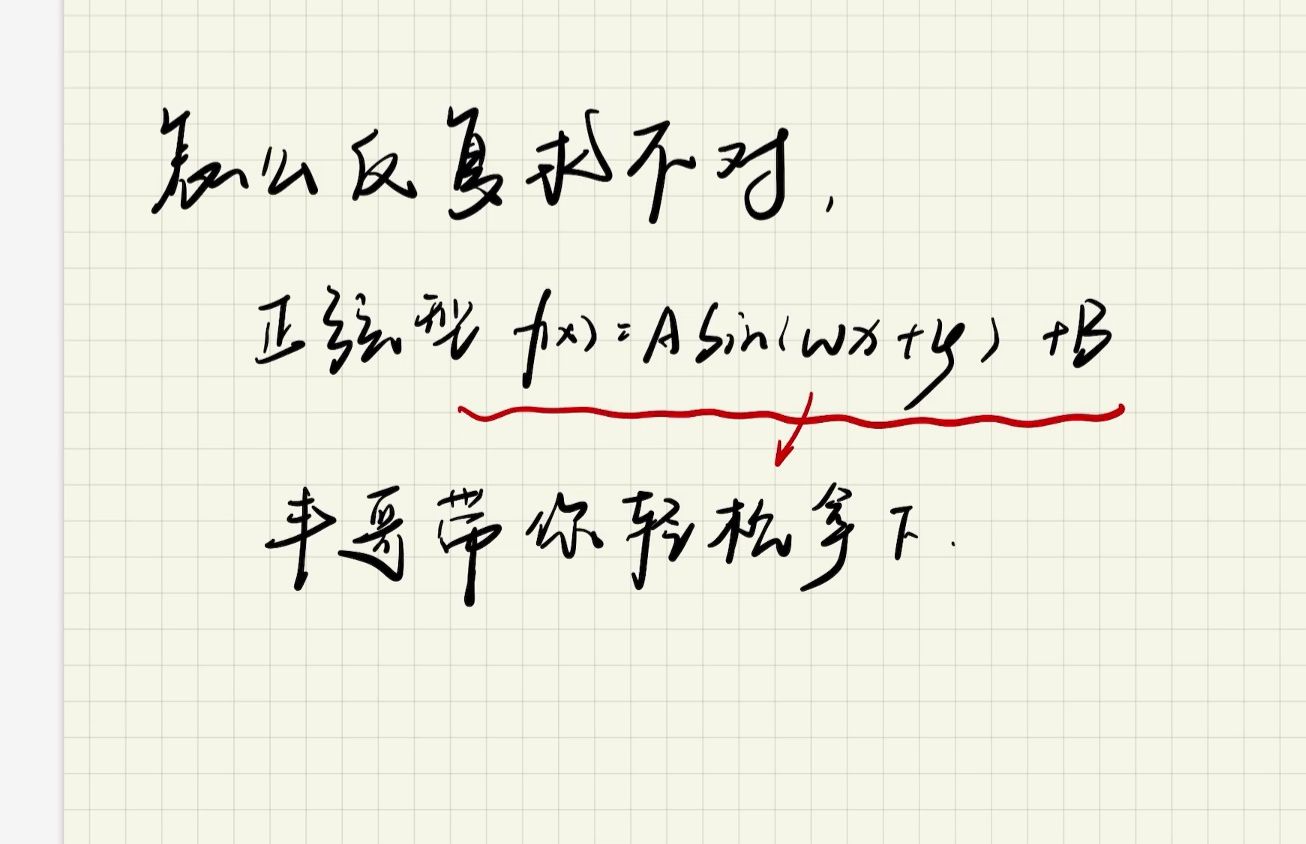 怎么反复求不对,
正弦型 f(x)=Asin(ωx+φ)+B
丰哥带你轻松拿下.